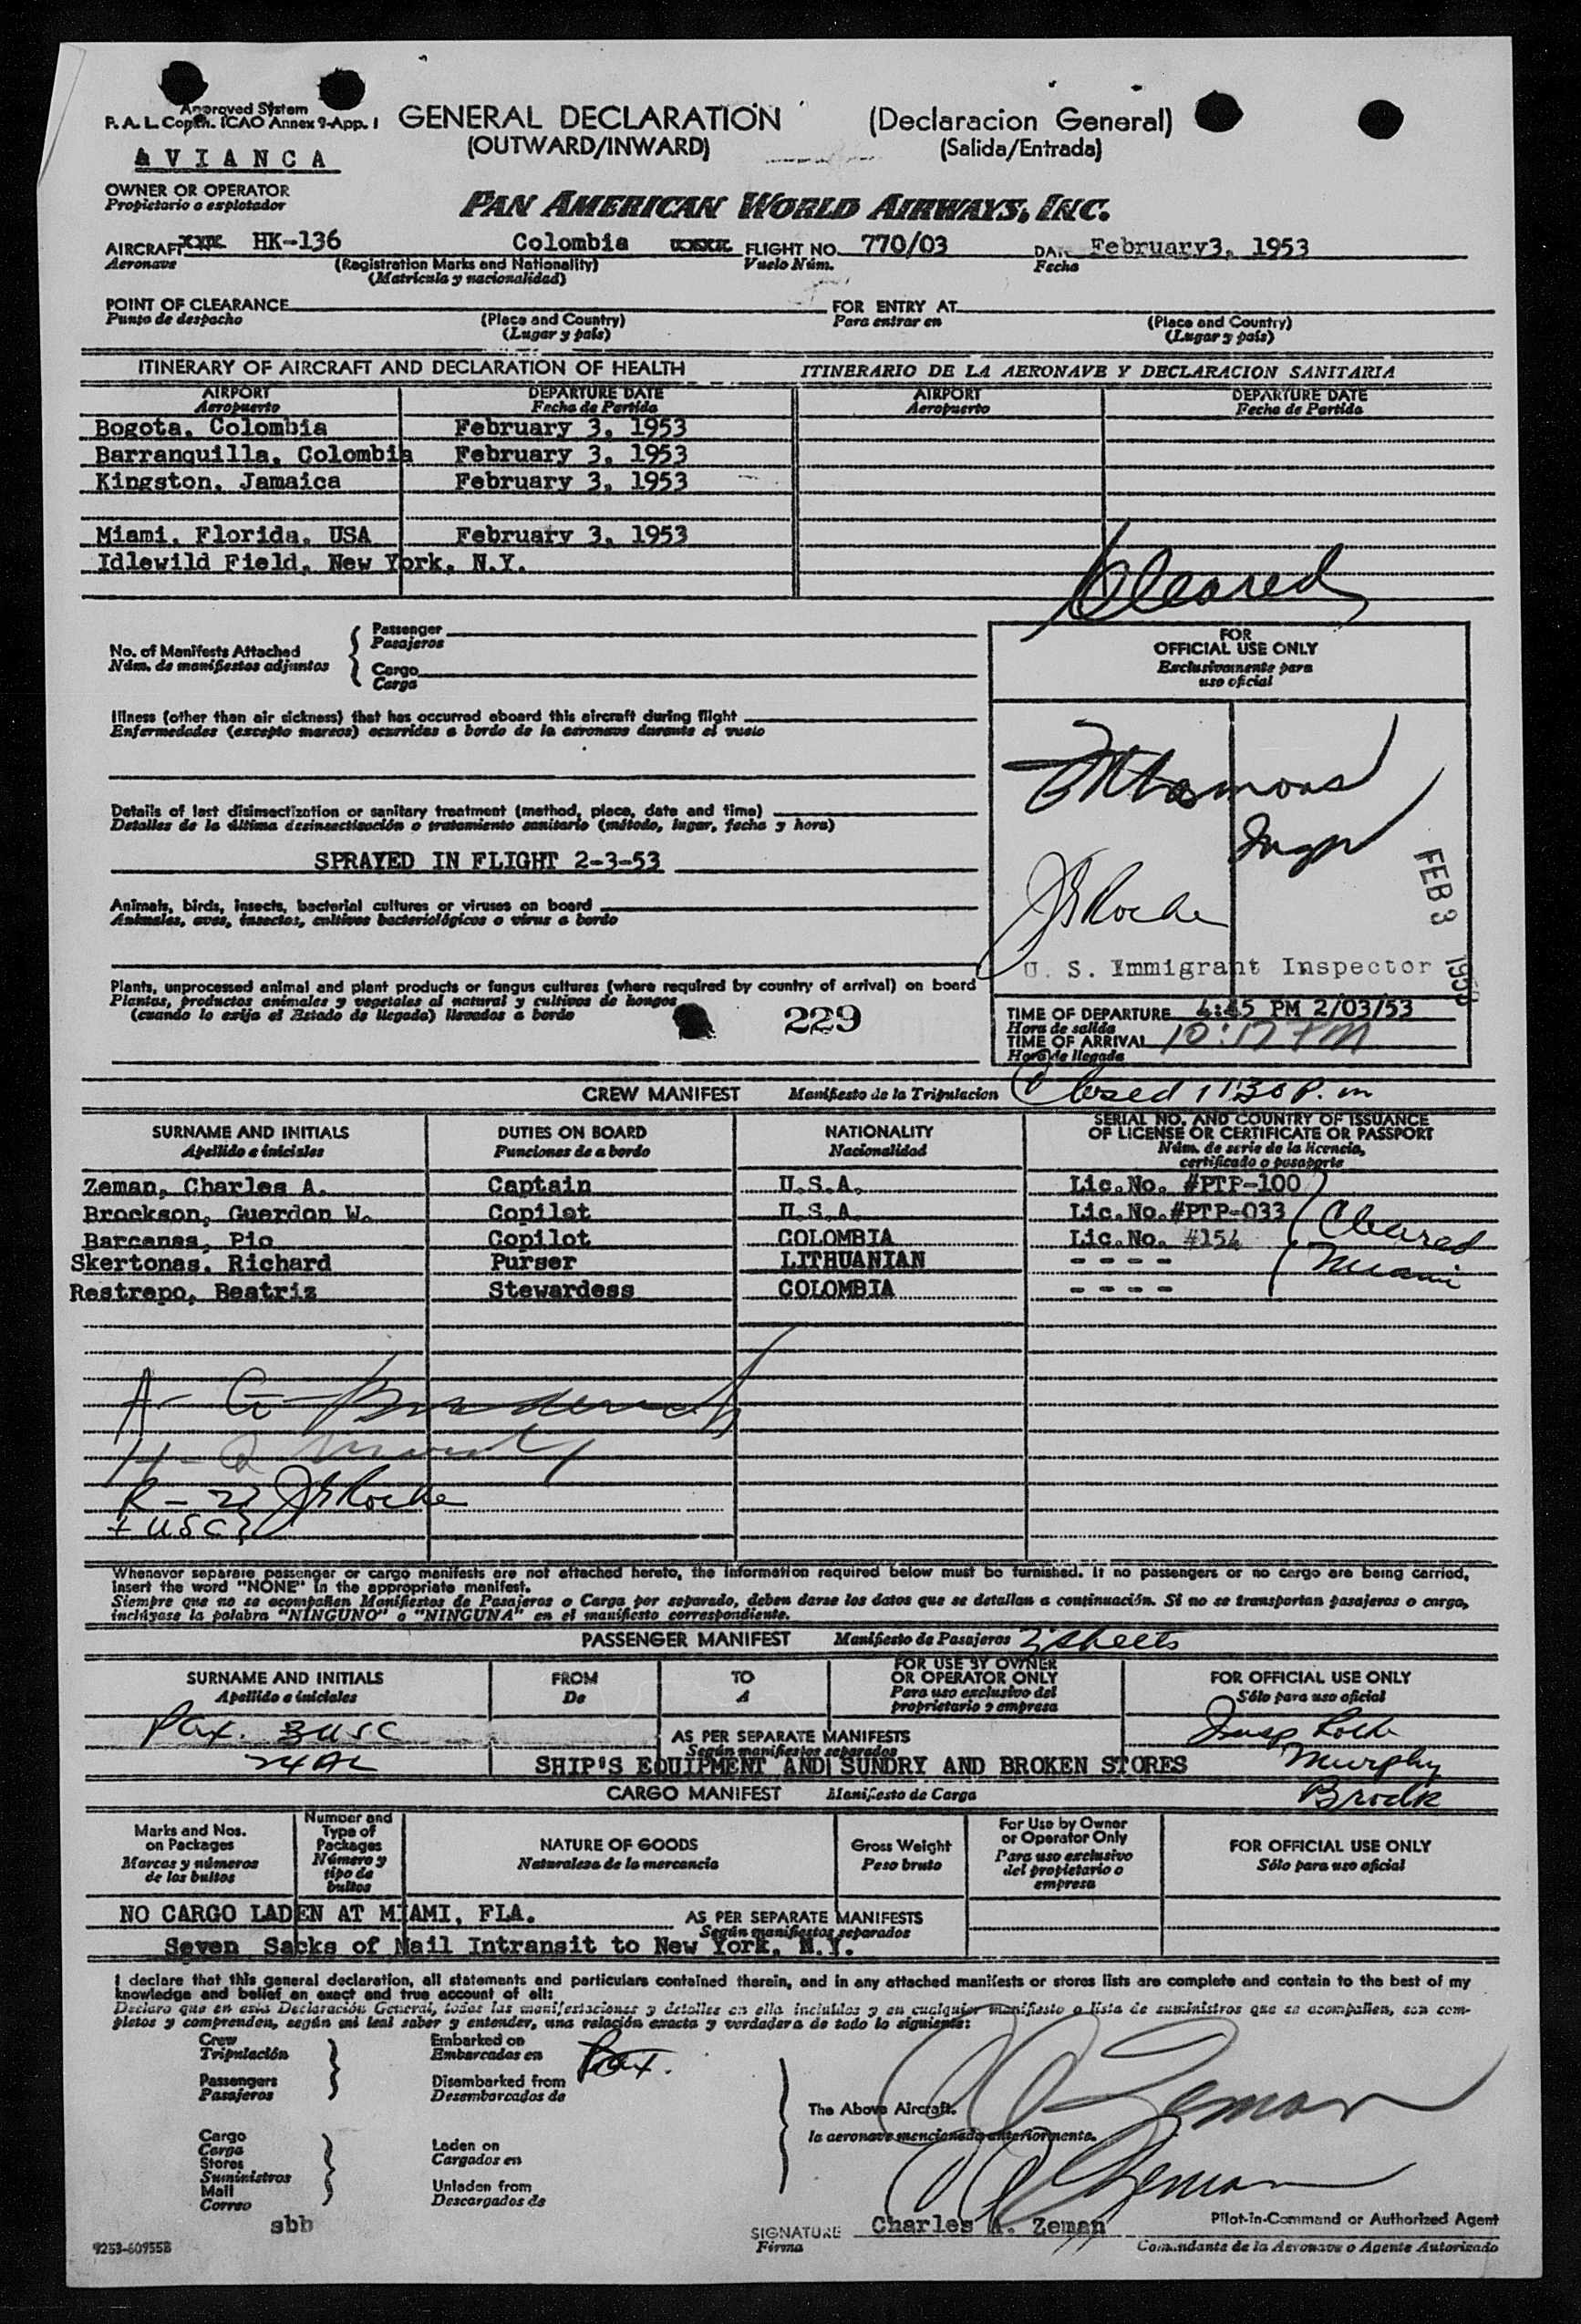 Approved System
F. A. L. Copth. ICAO Annex 9-App. 1
GENERAL DECLARATION (Declaracion General)
(OUTWARD/INWARD) (Salida/Entrada)
AVIANCA
OWNER OR OPERATOR
Propietario o explotador
PAN AMERICAN WORLD AIRWAYS, INC.
AIRCRAFT HK-136 Colombia FLIGHT NO. 770/03 DATE February3, 1953
Aeronave (Registration Marks and Nationality) Vuelo Núm. Fecha
(Matricula y nacionalidad)
POINT OF CLEARANCE FOR ENTRY AT
Punto de despacho (Place and Country) Para entrar en (Place and Country)
(Lugar y país) (Lugar y país)
ITINERARY OF AIRCRAFT AND DECLARATION OF HEALTH ITINERARIO DE LA AERONAVE Y DECLARACION SANITARIA
AIRPORT DEPARTURE DATE AIRPORT DEPARTURE DATE
Aeropuerto Fecha de Partida Aeropuerto Fecha de Partida
Bogota, Colombia February 3, 1953
Barranquilla, Colombia February 3, 1953
Kingston, Jamaica February 3, 1953
Miami, Florida, USA February 3, 1953
Idlewild Field, New York, N.Y.
Cleared
No. of Manifests Attached
Núm. de manifiestos adjuntos
Passenger
Pasajeros
Cargo
Carga
FOR
OFFICIAL USE ONLY
Exclusivamente para
uso oficial
Illness (other than air sickness) that has occurred aboard this aircraft during flight
Enfermedades (excepto mareos) ocurridas a bordo de la aeronave durante el vuelo
Details of last disinsectization or sanitary treatment (method, place, date and time)
Detalles de la última desinsectización o tratamiento sanitario (método, lugar, fecha y hora)
SPRAYED IN FLIGHT 2-3-53
Insp
Animals, birds, insects, bacterial cultures or viruses on board
Animales, aves, insectos, cultivos bacteriológicos o virus a bordo
J S Roche
FEB 3 1953
U. S. Immigrant Inspector
Plants, unprocessed animal and plant products or fungus cultures (where required by country of arrival) on board
Plantas, productos animales y vegetales al natural y cultivos de hongos
(cuando lo exija el Estado de llegada) llevados a bordo
229
TIME OF DEPARTURE 4:45 PM 2/03/53
Hora de salida
TIME OF ARRIVAL 10:17 PM
Hora de llegada
CREW MANIFEST Manifiesto de la Tripulacion Closed 11:30 P.m
SURNAME AND INITIALS DUTIES ON BOARD NATIONALITY SERIAL NO. AND COUNTRY OF ISSUANCE
OF LICENSE OR CERTIFICATE OR PASSPORT
Apellido e iniciales Funciones de a bordo Nacionalidad Núm. de serie de la licencia,
certificado o pasaporte
Zeman, Charles A. Captain U.S.A. Lic.No. #PTP-100
Brockson, Guerdon W. Copilot U.S.A. Lic.No.#PTP-033
Barcanas, Pio Copilot COLOMBIA Lic.No. #154
Skertonas, Richard Purser LITHUANIAN - - - -
Restrepo, Beatriz Stewardess COLOMBIA - - - -
Cleared
Miami
R - 27 J S Roche
+ USC
Whenever separate passenger or cargo manifests are not attached hereto, the information required below must be furnished. If no passengers or no cargo are being carried,
insert the word "NONE" in the appropriate manifest.
Siempre que no se acompañen Manifiestos de Pasajeros o Carga por separado, deben darse los datos que se detallan a continuación. Si no se transportan pasajeros o carga,
inclúyase la palabra "NINGUNO" o "NINGUNA" en el manifiesto correspondiente.
PASSENGER MANIFEST Manifiesto de Pasajeros 2 sheets
SURNAME AND INITIALS FROM TO FOR USE BY OWNER
OR OPERATOR ONLY FOR OFFICIAL USE ONLY
Apellido e iniciales De A Para uso exclusivo del
propietario o empresa Sólo para uso oficial
Pax. 3 USC
24 AL
AS PER SEPARATE MANIFESTS
Según manifiestos separados
Insp Roche
Murphy
Brock
SHIP'S EQUIPMENT AND SUNDRY AND BROKEN STORES
CARGO MANIFEST Manifiesto de Carga
Marks and Nos.
on Packages
Marcas y números
de los bultos
Number and
Type of
Packages
Número y
tipo de
bultos
NATURE OF GOODS
Naturaleza de la mercancia
Gross Weight
Peso bruto
For Use by Owner
or Operator Only
Para uso exclusivo
del propietario o
empresa
FOR OFFICIAL USE ONLY
Sólo para uso oficial
NO CARGO LADEN AT MIAMI, FLA. AS PER SEPARATE MANIFESTS
Según manifiestos separados
Seven Sacks of Mail Intransit to New York, N.Y.
I declare that this general declaration, all statements and particulars contained therein, and in any attached manifests or stores lists are complete and contain to the best of my
knowledge and belief an exact and true account of all:
Declaro que en esta Declaración General, todas las manifestaciones y detalles en ella incluídos y en cualquier manifiesto o lista de suministros que se acompañen, son com-
pletos y comprenden, según mi leal saber y entender, una relación exacta y verdadera de todo lo siguiente:
Crew
Tripulación
Passengers
Pasajeros
Embarked on
Embarcados en
Pax.
Disembarked from
Desembarcados de
The Above Aircraft.
la aeronave mencionada anteriormente.
Cargo
Carga
Stores
Suministros
Mail
Correo
Laden on
Cargados en
Unladen from
Descargados de
C A Zeman
C A Zeman
sbh
SIGNATURE Charles A. Zeman Pilot-in-Command or Authorized Agent
Firma Comandante de la Aeronave o Agente Autorizado
9253-60955B